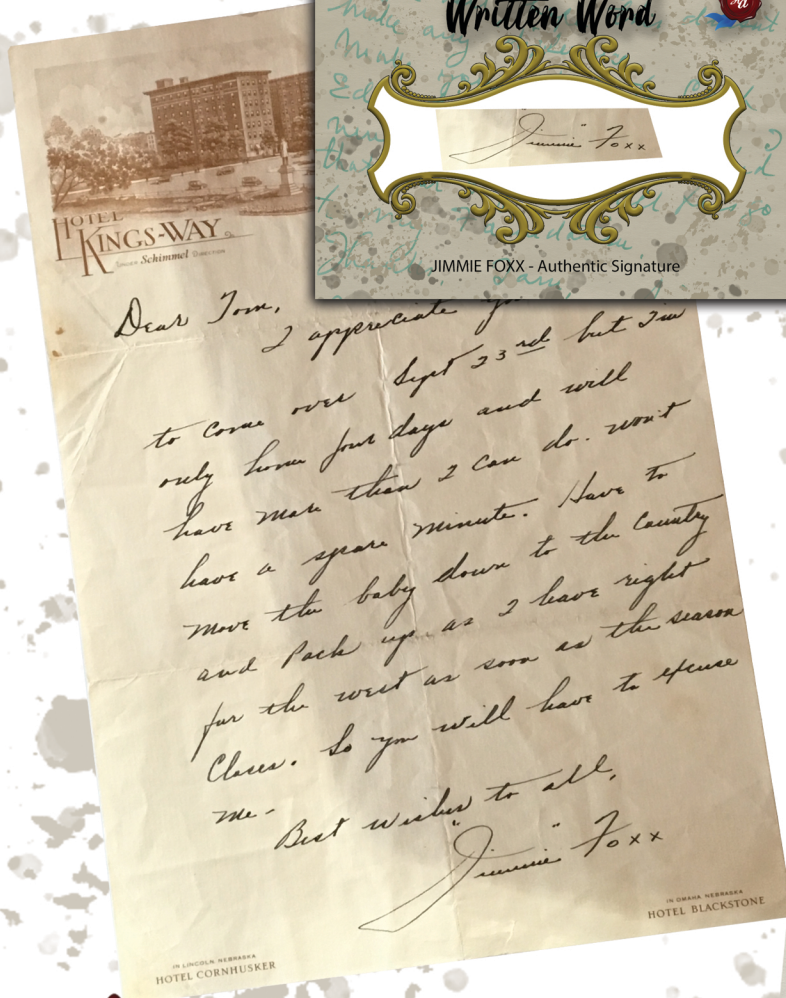 Written Word
"Jimmie" Foxx
JIMMIE FOXX - Authentic Signature
HOTEL
KINGS-WAY
Schimmel DIRECTION
Dear Tom,
I appreciate
to come over Sept 23rd but I'm
only home four days and will
have more than I can do. won't
have a spare minute. Have to
move the baby down to the country
and Pack up as I have right
for the west as soon as the season
Closes. So you will have to excuse
me-
Best wishes to all,
"Jimmie" Foxx
IN LINCOLN NEBRASKA
HOTEL CORNHUSKER
IN OMAHA NEBRASKA
HOTEL BLACKSTONE